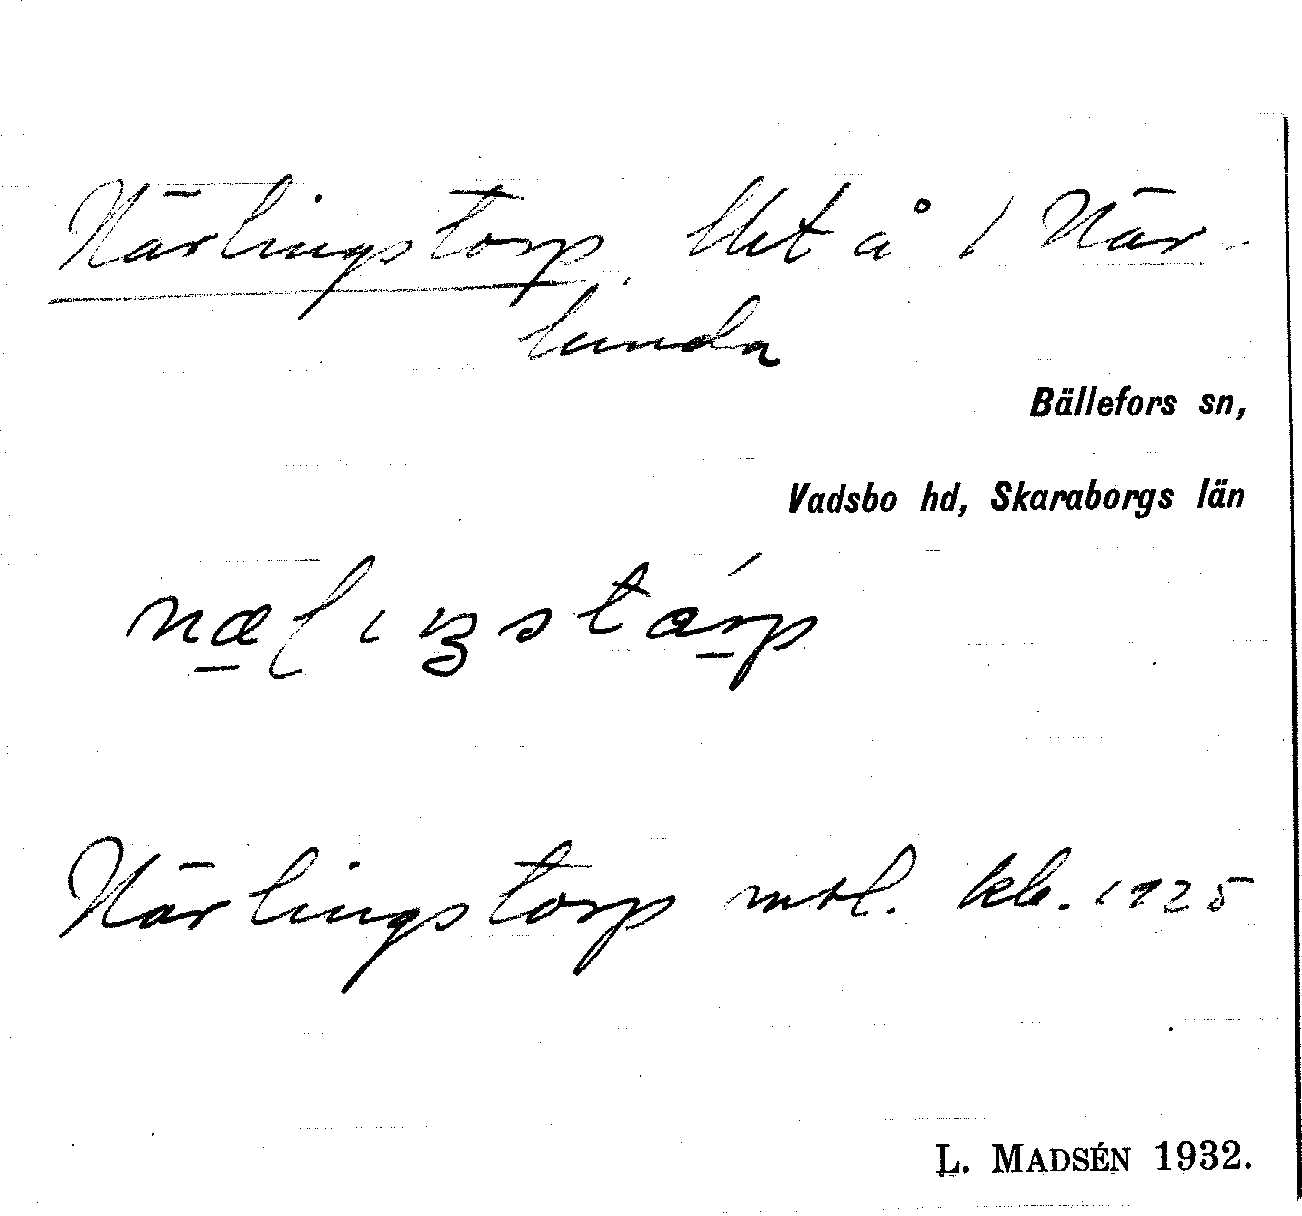 Närlingstorp, Utet å 1 När-
lunda
Bällefors sn,
Vadsbo hd, Skaraborgs län
Närlingstorp mtl. kb. 1925
L. MADSÉN 1932.